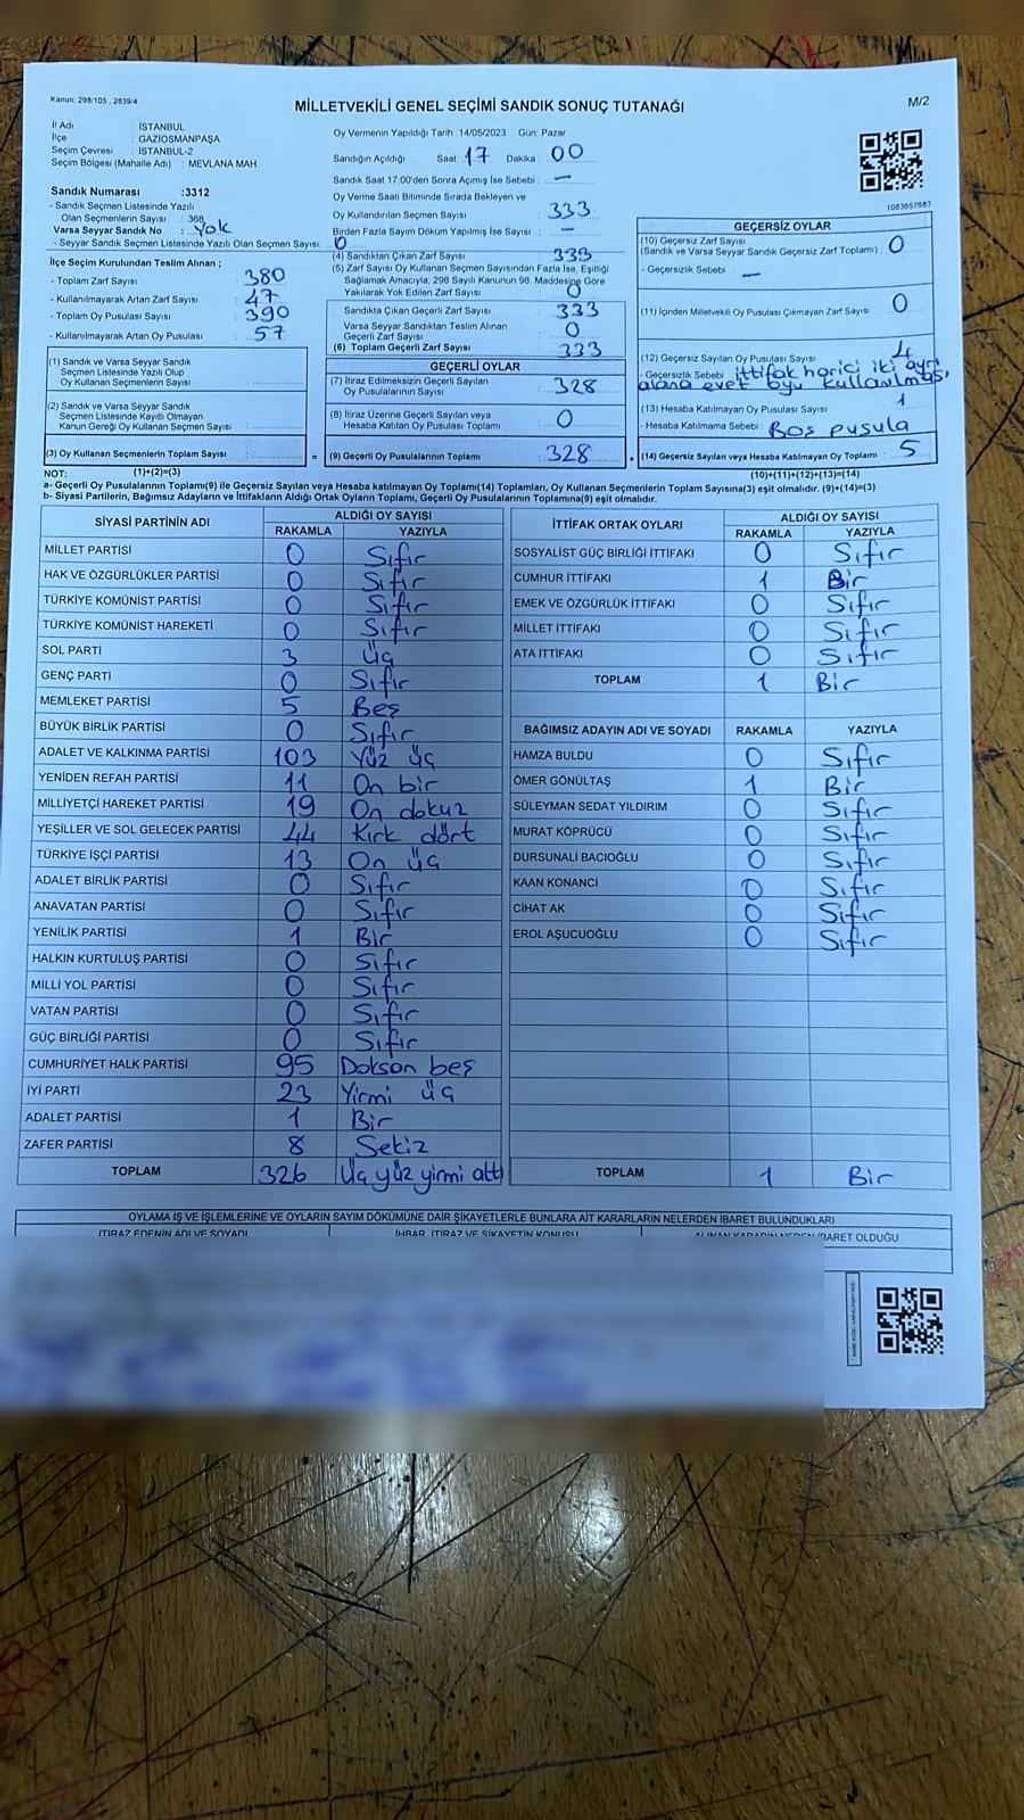 Kanun: 298/105 , 2839/4
MİLLETVEKİLİ GENEL SEÇİMİ SANDIK SONUÇ TUTANAĞI
M/2
İl Adı İSTANBUL
İlçe : GAZİOSMANPAŞA
Seçim Çevresi : İSTANBUL-2
Seçim Bölgesi (Mahalle Adı) : MEVLANA MAH.
Oy Vermenin Yapıldığı Tarih :14/05/2023 Gün: Pazar
Sandığın Açıldığı Saat 17 Dakika 00
Sandık Saat 17:00'den Sonra Açılmış İse Sebebi : —
Oy Verme Saati Bitiminde Sırada Bekleyen ve
Oy Kullandırılan Seçmen Sayısı 333
Birden Fazla Sayım Döküm Yapılmış İse Sayısı : —
Sandık Numarası :3312
- Sandık Seçmen Listesinde Yazılı
Olan Seçmenlerin Sayısı : 368
Varsa Seyyar Sandık No : Yok
- Seyyar Sandık Seçmen Listesinde Yazılı Olan Seçmen Sayısı: 0
İlçe Seçim Kurulundan Teslim Alınan ;
- Toplam Zarf Sayısı 380
- Kullanılmayarak Artan Zarf Sayısı 47
- Toplam Oy Pusulası Sayısı 390
- Kullanılmayarak Artan Oy Pusulası 57
(1) Sandık ve Varsa Seyyar Sandık
Seçmen Listesinde Yazılı Olup
Oy Kullanan Seçmenlerin Sayısı
(2) Sandık ve Varsa Seyyar Sandık
Seçmen Listesinde Kayıtlı Olmayan
Kanun Gereği Oy Kullanan Seçmen Sayısı
(3) Oy Kullanan Seçmenlerin Toplam Sayısı
(4) Sandıktan Çıkan Zarf Sayısı 333
(5) Zarf Sayısı Oy Kullanan Seçmen Sayısından Fazla İse, Eşitliği
Sağlamak Amacıyla; 298 Sayılı Kanunun 98. Maddesine Göre
Yakılarak Yok Edilen Zarf Sayısı 0
Sandıkta Çıkan Geçerli Zarf Sayısı 333
Varsa Seyyar Sandıktan Teslim Alınan
Geçerli Zarf Sayısı 0
(6) Toplam Geçerli Zarf Sayısı 333
GEÇERLİ OYLAR
(7) İtiraz Edilmeksizin Geçerli Sayılan
Oy Pusulalarının Sayısı 328
(8) İtiraz Üzerine Geçerli Sayılan veya
Hesaba Katılan Oy Pusulası Toplamı 0
= (9) Geçerli Oy Pusulalarının Toplamı 328
1083657687
GEÇERSİZ OYLAR
(10) Geçersiz Zarf Sayısı
(Sandık ve Varsa Seyyar Sandık Geçersiz Zarf Toplamı) : 0
- Geçersizlik Sebebi —
(11) İçinden Milletvekili Oy Pusulası Çıkmayan Zarf Sayısı 0
(12) Geçersiz Sayılan Oy Pusulası Sayısı 4
- Geçersizlik Sebebi ittifak harici iki ayrı
alana evet oyu kullanılmas.
(13) Hesaba Katılmayan Oy Pusulası Sayısı 1
- Hesaba Katılmama Sebebi : Boş pusula
+ (14) Geçersiz Sayılan veya Hesaba Katılmayan Oy Toplamı 5
NOT: (1)+(2)=(3) (10)+(11)+(12)+(13)=(14)
a- Geçerli Oy Pusulalarının Toplamı(9) ile Geçersiz Sayılan veya Hesaba katılmayan Oy Toplamı(14) Toplamları, Oy Kullanan Seçmenlerin Toplam Sayısına(3) eşit olmalıdır. (9)+(14)=(3)
b- Siyasi Partilerin, Bağımsız Adayların ve İttifakların Aldığı Ortak Oyların Toplamı, Geçerli Oy Pusulalarının Toplamına(9) eşit olmalıdır.
SİYASİ PARTİNİN ADI ALDIĞI OY SAYISI
RAKAMLA YAZIYLA
MİLLET PARTİSİ 0 Sıfır
HAK VE ÖZGÜRLÜKLER PARTİSİ 0 Sıfır
TÜRKİYE KOMÜNİST PARTİSİ 0 Sıfır
TÜRKİYE KOMÜNİST HAREKETİ 0 Sıfır
SOL PARTİ 3 Üç
GENÇ PARTİ 0 Sıfır
MEMLEKET PARTİSİ 5 Beş
BÜYÜK BİRLİK PARTİSİ 0 Sıfır
ADALET VE KALKINMA PARTİSİ 103 Yüz üç
YENİDEN REFAH PARTİSİ 11 On bir
MİLLİYETÇİ HAREKET PARTİSİ 19 On dokuz
YEŞİLLER VE SOL GELECEK PARTİSİ 44 Kırk dört
TÜRKİYE İŞÇİ PARTİSİ 13 On üç
ADALET BİRLİK PARTİSİ 0 Sıfır
ANAVATAN PARTİSİ 0 Sıfır
YENİLİK PARTİSİ 1 Bir
HALKIN KURTULUŞ PARTİSİ 0 Sıfır
MİLLİ YOL PARTİSİ 0 Sıfır
VATAN PARTİSİ 0 Sıfır
GÜÇ BİRLİĞİ PARTİSİ 0 Sıfır
CUMHURİYET HALK PARTİSİ 95 Doksan beş
İYİ PARTİ 23 Yirmi üç
ADALET PARTİSİ 1 Bir
ZAFER PARTİSİ 8 Sekiz
TOPLAM 326 Üç yüz yirmi altı
İTTİFAK ORTAK OYLARI ALDIĞI OY SAYISI
RAKAMLA YAZIYLA
SOSYALİST GÜÇ BİRLİĞİ İTTİFAKI 0 Sıfır
CUMHUR İTTİFAKI 1 Bir
EMEK VE ÖZGÜRLÜK İTTİFAKI 0 Sıfır
MİLLET İTTİFAKI 0 Sıfır
ATA İTTİFAKI 0 Sıfır
TOPLAM 1 Bir
BAĞIMSIZ ADAYIN ADI VE SOYADI RAKAMLA YAZIYLA
HAMZA BULDU 0 Sıfır
ÖMER GÖNÜLTAŞ 1 Bir
SÜLEYMAN SEDAT YILDIRIM 0 Sıfır
MURAT KÖPRÜCÜ 0 Sıfır
DURSUNALİ BACIOĞLU 0 Sıfır
KAAN KONANCI 0 Sıfır
CİHAT AK 0 Sıfır
EROL AŞUCUOĞLU 0 Sıfır
TOPLAM 1 Bir
OYLAMA İŞ VE İŞLEMLERİNE VE OYLARIN SAYIM DÖKÜMÜNE DAİR ŞİKAYETLERLE BUNLARA AİT KARARLARIN NELERDEN İBARET BULUNDUKLARI
İTİRAZ EDENİN ADI VE SOYADI İHBAR, İTİRAZ VE ŞİKAYETİN KONUSU İBARET OLDUĞU